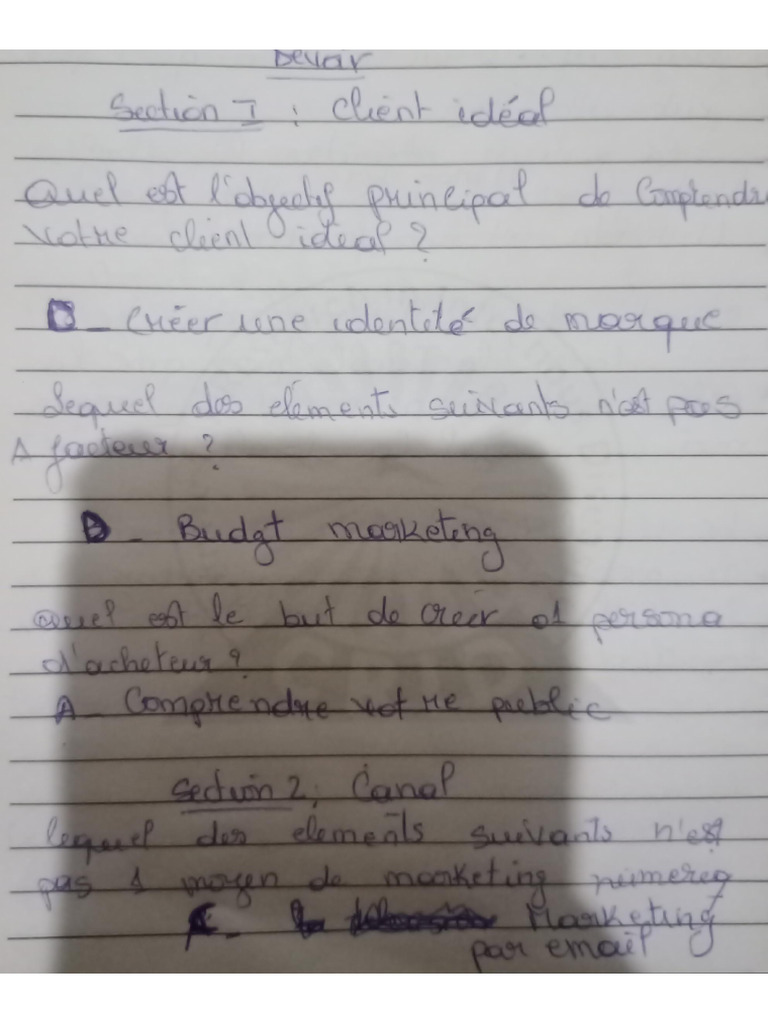 Devar
Section I : Client idéal
Quel est l'objectif principal de Comprendre
votre client idéal ?
D - Créer une identité de marque
Lequel des eléments suivants n'est pas
1 facteur ?
D - Budgt marketing
Quel est le but de creér 01 persona
d'acheteur ?
A - Comprendre votre public
Section 2 : Canal
lequel des elements suivants n'est
pas 1 moyen de marketing numereq
C - Marketing
par email